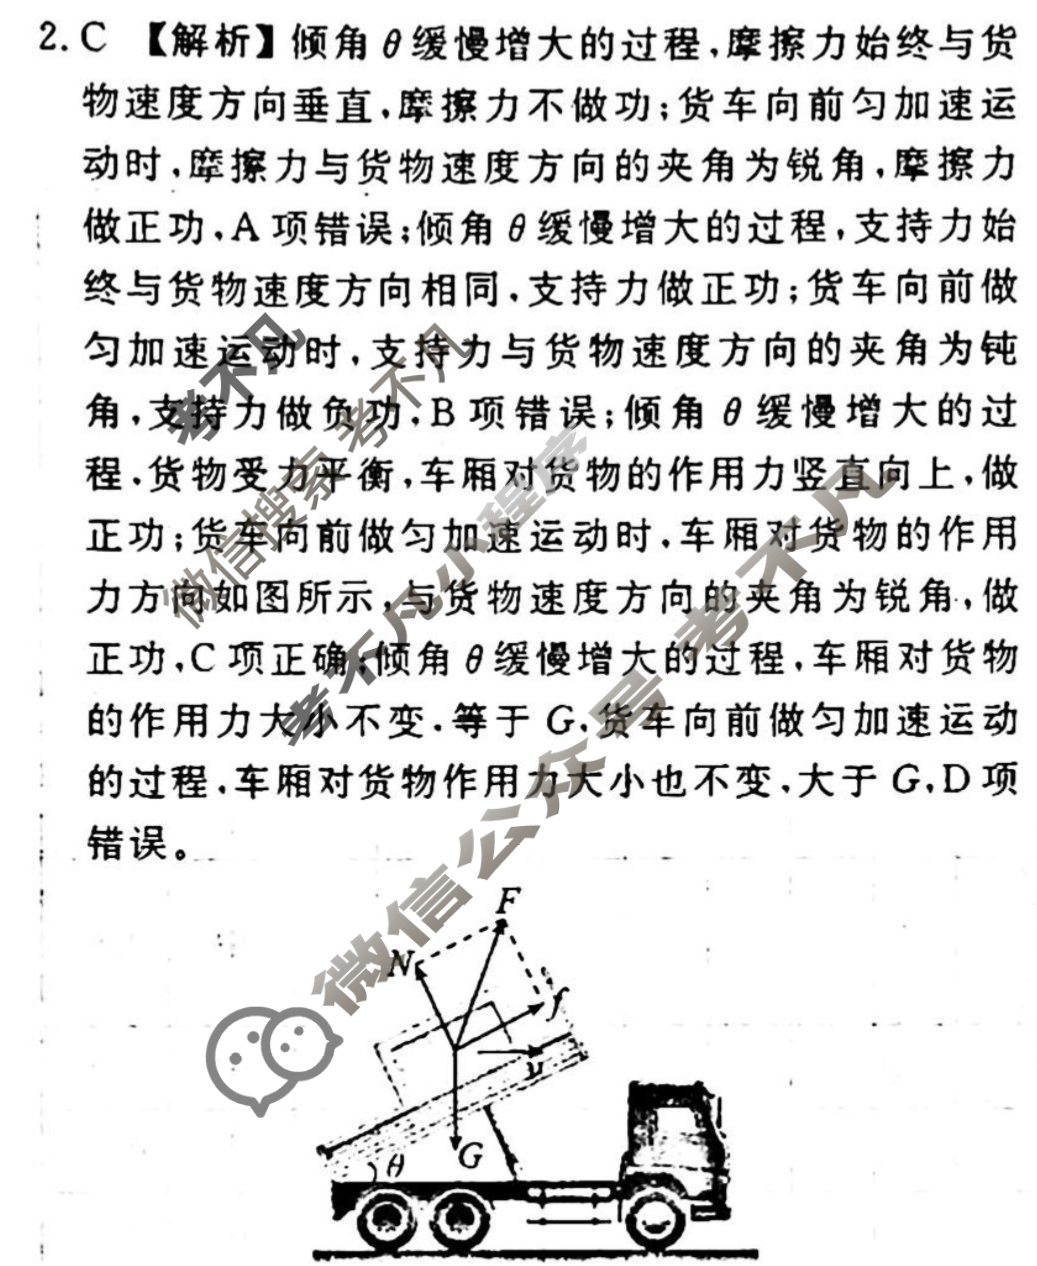 2. C 【解析】倾角 θ 缓慢增大的过程,摩擦力始终与货
物速度方向垂直,摩擦力不做功;货车向前匀加速运
动时,摩擦力与货物速度方向的夹角为锐角,摩擦力
做正功,A 项错误;倾角 θ 缓慢增大的过程,支持力始
终与货物速度方向相同,支持力做正功;货车向前做
匀加速运动时,支持力与货物速度方向的夹角为钝
角,支持力做负功,B 项错误;倾角 θ 缓慢增大的过
程,货物受力平衡,车厢对货物的作用力竖直向上,做
正功;货车向前做匀加速运动时,车厢对货物的作用
力方向如图所示,与货物速度方向的夹角为锐角,做
正功,C 项正确;倾角 θ 缓慢增大的过程,车厢对货物
的作用力大小不变,等于 G,货车向前做匀加速运动
的过程,车厢对货物作用力大小也不变,大于 G,D 项
错误。
考不凡
微信搜索 考不凡
考不凡小程序
微信公众号 考不凡
F
N
f
v
G
θ